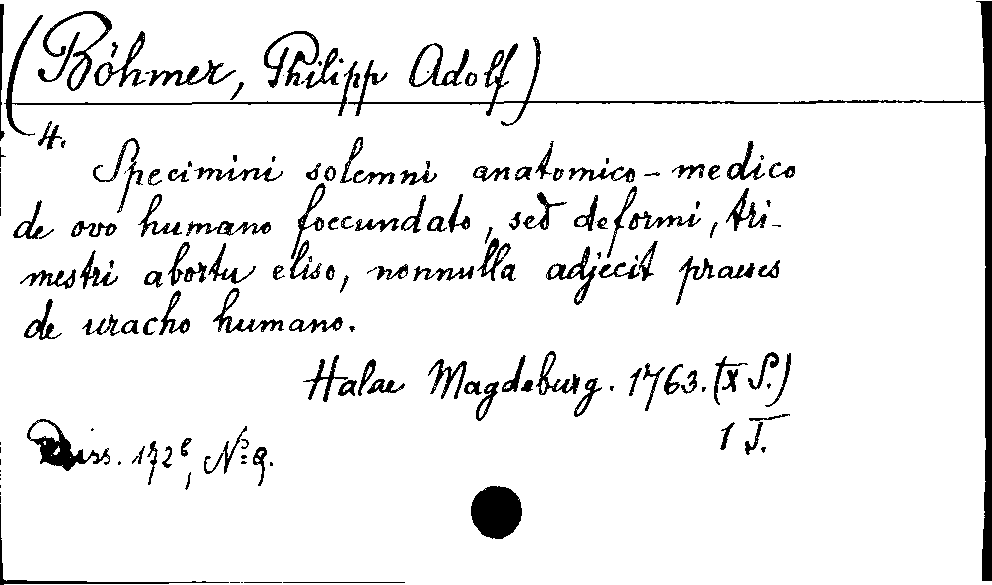 (Böhmer, Philipp Adolf)
4.
Specimini solemni anatomico-medico
de ovo humano foecundato, sed deformi, tri-
mestri abortu eliso, nonnulla adjecit praeses
de uracho humano.
Halae Magdeburg. 1763. (IX S.)
1 T.
Diss. 172⁸, No 9.